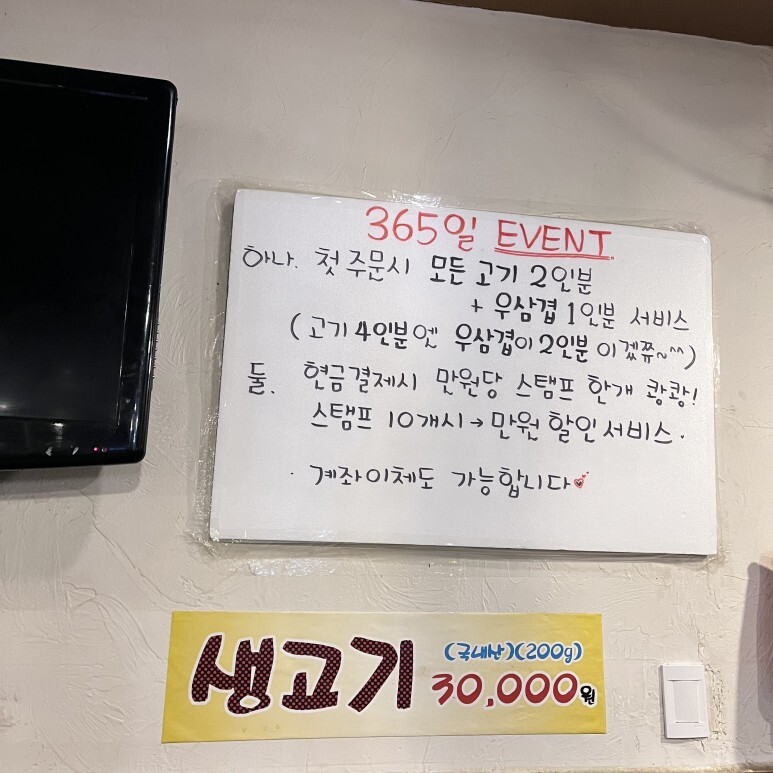 365일 EVENT
하나. 첫 주문시 모든 고기 2인분
+ 우삼겹 1인분 서비스
(고기 4인분엔 우삼겹이 2인분 이겠쮸~^^)
둘. 현금결제시 만원당 스탬프 한개 쾅쾅!
스탬프 10개시→만원 할인서비스.
· 계좌이체도 가능합니다
생고기 (국내산)(200g)
30,000원